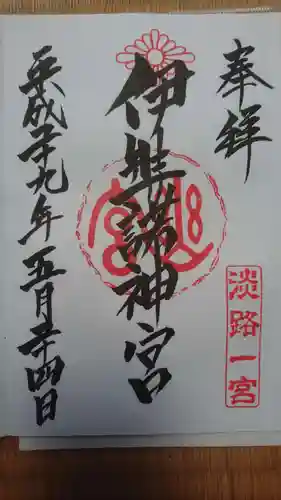 奉拝
淡路一宮
伊弉諾神宮
平成二十九年五月二十四日